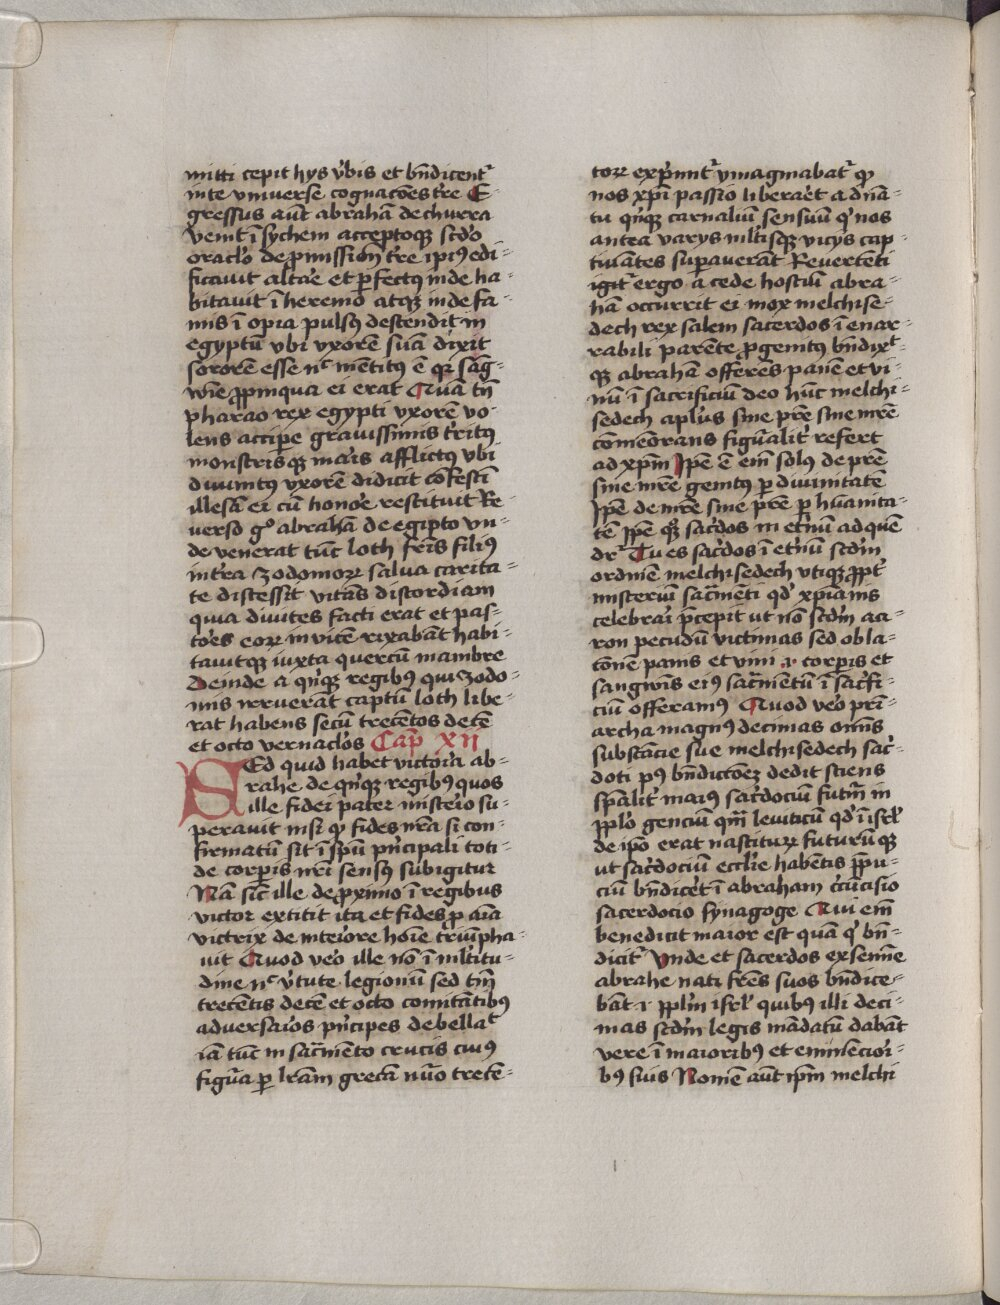 mitti cepit hys v̓bis et bn̄dicentʳ
in te vniuerse cognacōes tr̄e E-
gressus aūt abrahā de chureā
venit ī sychem acceptoqꝫ scd̓o
oracl̓o de ꝓmissiōn tr̄e ip̄iꝰ edi-
ficauit altar̓e et ꝑfectus inde ha-
bitauit ī heremo atqꝫ inde fa-
mis ī opia pulsꝰ descendit in
egyptū vbi vxorē suā dixit
sororē esse nᶜ mētitꝰ ē qꝛ sāg-
wīe ꝓpinqua ei erat Quā tn̄
pharao rex egypti vxorē vo-
lens accip̄e grauissimis tr̓ritꝰ
monstrisqꝫ mar̓is afflictꝰ vbi
diuinitꝰ vxorē didicit cōfestī
illesā ei cū honor̓e restituit Re-
uerso gᵒ abrahā de egipto vn-
de venerat tūc loth fr̄is filiꝰ
intra zodomorꝝ salua carita-
te discessit vitās discordiam
quia diuites facti erāt et pas-
tor̓es eorꝝ inuicē rixabāt habi-
tauitqꝫ iuxta quercū mambre
Deinde a qn̓qꝫ regibꝰ qui zodo-
mis irruerāt captū loth libe-
rat habens secū trecētos decē
et octo vernacl̓os Cap̄ XII
SEd quid habet victor̓ia ab-
rahe de qn̓qꝫ regibꝰ quos
ille fidei pater mister̓io su-
perauit nisi ꝙ fides nr̄a si con-
firmatū sit ī sp̄ū pn̓cipali toti-
de corpis nr̄i sensꝰ subigitur
Nā sic̄ ille de ꝓximo ī regibus
victor extitit ita et fides ꝑ aīā
victrix de inter̓iore hoīe triūpha-
uit Quod ver̓o ille nō ī ml̄titu-
dine nᶜ v̓tute legionū sed tm̄
trecētis decē et octo comitātibꝰ
aduersar̓ios pn̓cipes debellaᵗ
iā tūc in sac̄mēto crucis cuiꝰ
figu̓a ꝑ lr̄am grecā nūo trecē-
torꝝ exp̓imitʳ ymaginabatʳ ꝙ
nos xp̄i passio liberar̓et a dn̄ā-
tu qn̓qꝫ carnaliū sensuū qͥ nos
antea varys ml̄tisqꝫ vicys cap-
tiuātes supauerāt Reuertēti
igit̓ ergo a cede hostiū abra-
hā occurrit ei mox melchise-
dech rex salem sacerdos ī enar-
rabili parēte ꝓgenitꝰ bn̄dixᵗ-
qꝫ abrahā offerēs panē et vi-
nū ī sacrificiū deo hūc melchi-
sedech apl̓us sine pr̄e sine mr̄e
cōmeōrans figu̓alit̓ refert
ad xp̄m Ip̄e ē em̄ solꝰ de pr̄e
sine mr̄e genitꝰ ꝑ diuinitatē
Ip̄e de mr̄e sine pr̄e ꝑ hūanita-
tē Ip̄e qꝫ sac̓dos in et̓nū ad quē
dr̄ Tu es sac̓dos ī et̓nū scd̄m
ordinē melchisedech vtiqꝫ ꝓpt̓
misteriū sac̄mēti qd̓ xp̄ianis
celebrar̓i p̄cepit ut nō scd̄m aa-
ron pecudū victimas sed obla-
cōne panis et vini .i. corpis et
sangwīs eiꝰ sac̄mētū ī sac̓fi-
ciū offeramꝰ Quod ver̓o pr̄i-
archa magnꝰ decimas om̄s
substācie sue melchisedech sac̓-
doti pꝰ bn̄dictōeꝫ dedit sciens
sp̄alit̓ maiꝰ sac̓dociū futm̄ in
ppl̓o genciū qm̄ leuiticū qd̓ ī isrl̓
de ip̄o erat nasciturꝝ futurūqꝫ
ut sac̓dociū eccl̓ie habētis p̄pu-
ciū bn̄dicer̓et ī abraham c̓cūcisio
sacerdocio synagoge Qui em̄
benedicit maior est quā qͥ bn̄-
dicitʳ Vnde et sacerdos ex semīe
abrahe nati fr̄es suos bn̄dice-
bāt .i. ppl̄m isrl̓ quibꝰ illi deci-
mas scd̄m legis mādatū dabāt
vere ī maioribꝰ et eminēcior̓i-
bꝰ suis Nomē aūt ip̄m melchi